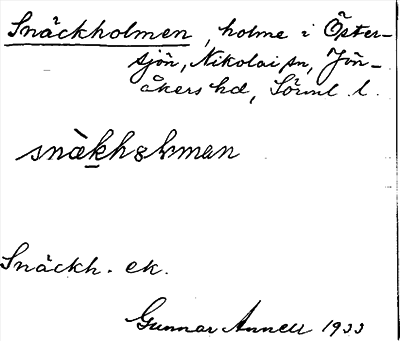 Snäckholmen, holme i Öster-
sjön, Nikolai sn, Jön-
åkers hd, Sörml. l.
Snäckh. ek.
Gunnar Annell 1933